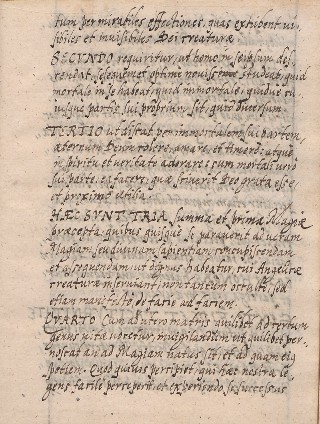 tum per mirabiles effectiones, quas exhibent vi-
sibiles et invisibiles Dei creaturæ
SECUNDO requiritur, ut homo in seipsum des
cendat, seseque optime novisse studeat, quid
mortale in se habeat, quid immortale, quidue cu
iusque partis sui proprium sit, quid diversum.
TERTIO ut discat per immortalem sui partem,
æternum Deum colere, amare, et timere, atque
in spiritu et veritate adorare: cum mortali vero
sui parte, ea facere, quæ sciverit Deo grata esse
et proximo utilia.
HÆC SUNT TRIA summa et prima Magiæ
præcepta, quibus quisque se præparet ad veram
Magiam seu divinam sapientiam concupiscendam
et assequendam, ut dignus habeatur, cui Angelicæ
creaturæ inserviant, non tantum occulte, sed
etiam manifesto de facie ad faciem.
QUARTO Cum ab utero matris quilibet ad certum
genus vitæ vocetur, invigilandum ut quilibet per-
noscat an ad Magiam natus sit, et ad quam eius
speciem. Quod quivis percipiet, qui hæc nostra le-
gens facile perceperit, et experiendo, se successus